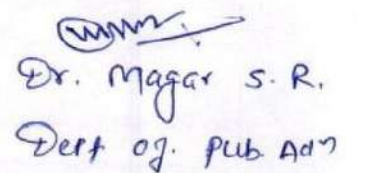 Dr. Magar S. R.
Dept of. Pub. Adm